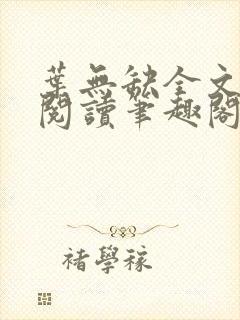 葉無缺全文
閱讀筆趣閣
褚學稼